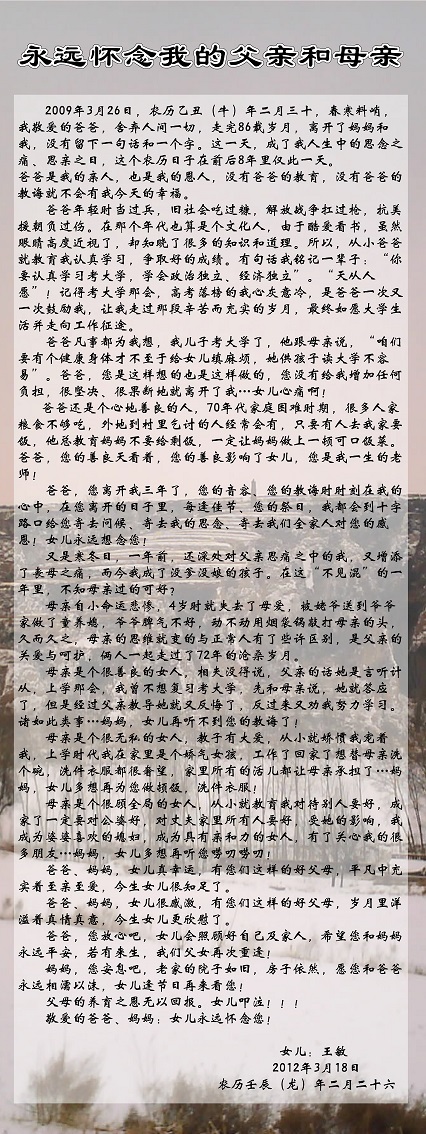 永远怀念我的父亲和母亲
2009年3月26日，农历乙丑（牛）年二月三十，春寒料峭，
我敬爱的爸爸，舍弃人间一切，走完86载岁月，离开了妈妈和
我，没有留下一句话和一个字。这一天，成了我人生中的思念之
痛、思亲之日，这个农历日子在前后8年里仅此一天。
爸爸是我的亲人，也是我的恩人，没有爸爸的教育，没有爸爸的
教诲就不会有我今天的幸福。
爸爸年轻时当过兵，旧社会吃过糠，解放战争扛过枪，抗美
援朝负过伤。在那个年代也算是个文化人，由于酷爱看书，虽然
眼睛高度近视了，却知晓了很多的知识和道理。所以，从小爸爸
就教育我认真学习，争取好的成绩。有句话我铭记一辈子：“你
要认真学习考大学，学会政治独立、经济独立”。“天从人
愿”！记得考大学那会，高考落榜的我心灰意冷，是爸爸一次又
一次鼓励我，让我走过那段辛苦而充实的岁月，最终如愿大学生
活并走向工作征途。
爸爸凡事都为我想，我儿子考大学了，他跟母亲说，“咱们
要有个健康身体才不至于给女儿填麻烦，她供孩子读大学不容
易”。爸爸，您是这样想的也是这样做的，您没有给我增加任何
负担，很坚决、很果断地就离开了我…女儿心痛啊！
爸爸还是个心地善良的人，70年代家庭困难时期，很多人家
粮食不够吃，外地到村里乞讨的人经常会有，只要有人去我家要
饭，他总教育妈妈不要给剩饭，一定让妈妈做上一顿可口饭菜。
爸爸，您的善良天看着，您的善良影响了女儿，您是我一生的老
师！
爸爸，您离开我三年了，您的音容、您的教诲时时刻在我的
心中，在您离开的日子里，每逢佳节、您的祭日，我都会到十字
路口给您寄去问候、寄去我的思念、寄去我们全家人对您的感
恩！女儿永远想念您！
又是寒冬日，一年前，还深处对父亲思痛之中的我，又增添
了丧母之痛，而今我成了没爹没娘的孩子。在这“不见混”的一
年里，不知母亲过的可好？
母亲自小命运悲惨，4岁时就失去了母爱，被姥爷送到爷爷
家做了童养媳，爷爷脾气不好，动不动用烟袋锅敲打母亲的头，
久而久之，母亲的思维就变的与正常人有了些许区别，是父亲的
关爱与呵护，俩人一起走过了72年的沧桑岁月。
母亲是个很善良的女人，相夫没得说，父亲的话她是言听计
从，上学那会，我曾不想复习考大学，先和母亲说，她就答应
了，但是经过父亲教导她就又反悔了，反过来又劝我努力学习。
诸如此类事…妈妈，女儿再听不到您的教诲了！
母亲是个很无私的女人，教子有大爱，从小就娇惯我宠着
我，上学时代我在家里是个娇气女孩，工作了回家了想替母亲洗
个碗，洗件衣服都很奢望，家里所有的活儿都让母亲承担了…妈
妈，女儿多想再为您做顿饭，洗件衣服！
母亲是个很顾全局的女人，从小就教育我对待别人要好，成
家了一定要对公婆好，对丈夫家里所有人要好，受她的影响，我
成为婆婆喜欢的媳妇，成为具有亲和力的女人，有了关心我的很
多朋友…妈妈，女儿多想再听您唠叨唠叨！
爸爸、妈妈，女儿真幸运，有您们这样的好父母，平凡中充
实着至亲至爱，今生女儿很知足了。
爸爸、妈妈，女儿很感激，有您们这样的好父母，岁月里洋
溢着真情真意，今生女儿更欣慰了。
爸爸，您放心吧，女儿会照顾好自己及家人，希望您和妈妈
永远平安，若有来生，我们父女再次重逢！
妈妈，您安息吧，老家的院子如旧，房子依然，愿您和爸爸
永远相濡以沫，女儿逢节日再来看您！
父母的养育之恩无以回报。女儿叩泣！！！
敬爱的爸爸、妈妈：女儿永远怀念您！
女儿：王敏
2012年3月18日
农历壬辰（龙）年二月二十六